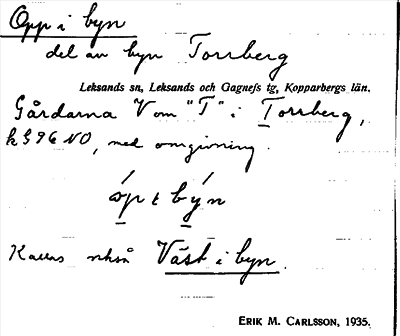 Opp i byn
del av byn Torrberg
Leksands sn, Leksands och Gagnefs tg, Kopparbergs län.
Gårdarna V om "T" i Torrberg,
k 696 NO, med omgivning.
óp i býn
Kallas också Väst i byn.
ERIK M. CARLSSON, 1935.